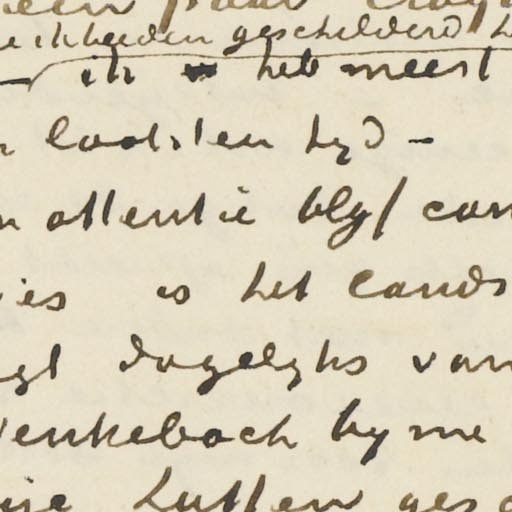 een paar
ik heden geschilderd h
— ik heb meest
laatsten tyd —
n attentie blyf con
ies is het Cands
gt dagelyks van
enkebach by me
Lutten gesc